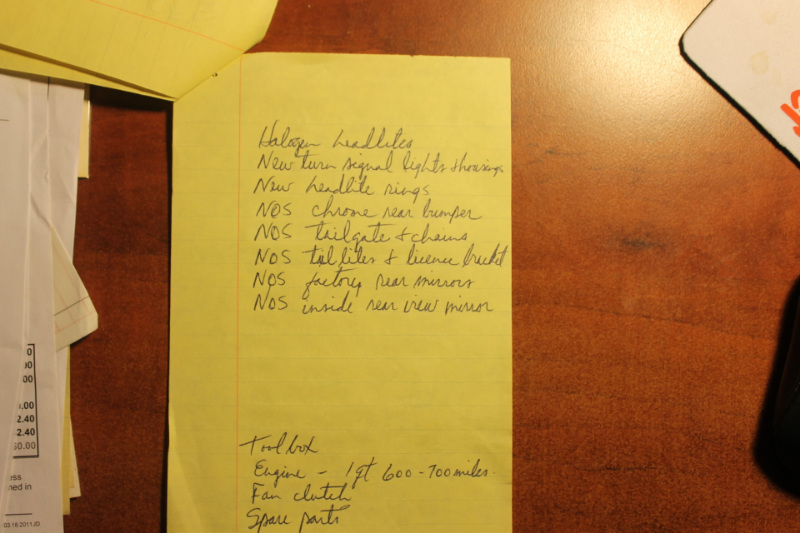 Halogen headlites
New turn signal lights & housings
New headlite rings
NOS chrome rear bumper
NOS tailgate & chains
NOS taillites & licence bracket
NOS factory rear mirrors
NOS inside rear view mirror
Tool box
Engine - 1 qt 600-700 miles.
Fan clutch
Spare parts
0
00
00
0.00
2.40
2.40
$0.00
ess
ned in
03.18.2011JD